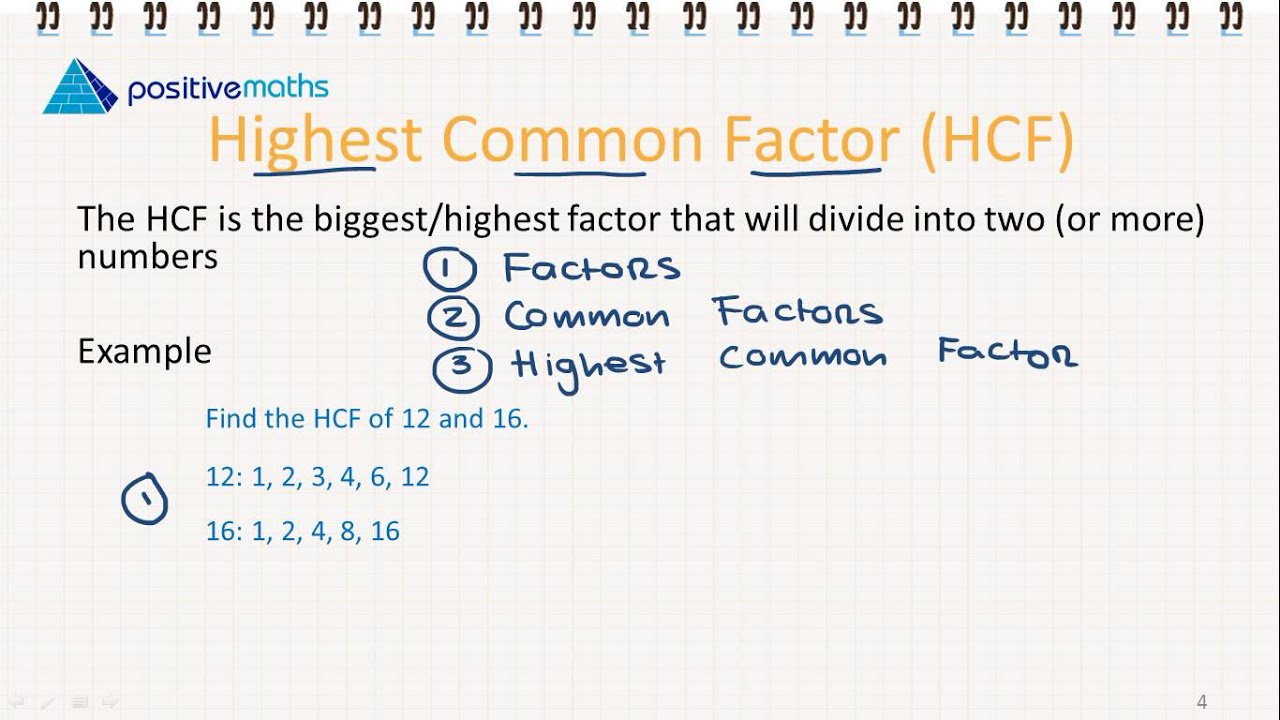 positivemaths
Highest Common Factor (HCF)
The HCF is the biggest/highest factor that will divide into two (or more)
numbers
1 Factors
2 Common Factors
3 Highest common Factor
Example
Find the HCF of 12 and 16.
1
12: 1, 2, 3, 4, 6, 12
16: 1, 2, 4, 8, 16
4